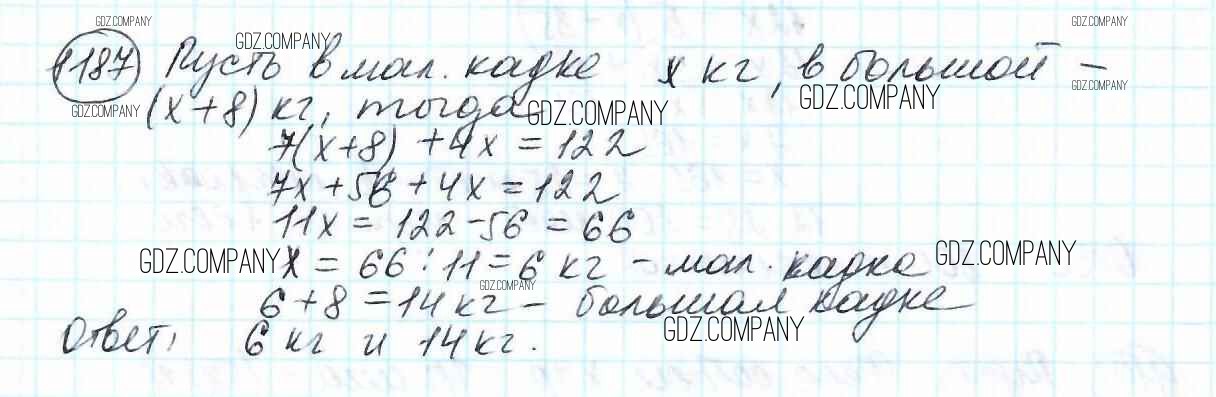 GDZ.COMPANY GDZ.COMPANY
1187 Пусть в мал. кадке x кг, в большой –
GDZ.COMPANY GDZ.COMPANY GDZ.COMPANY
GDZ.COMPANY (x+8) кг, тогда GDZ.COMPANY
7(x+8) + 4x = 122
7x + 56 + 4x = 122
11x = 122 - 56 = 66
GDZ.COMPANY x = 66 : 11 = 6 кг – мал. кадка GDZ.COMPANY
GDZ.COMPANY
6 + 8 = 14 кг – большая кадке
GDZ.COMPANY
Ответ: 6 кг и 14 кг.